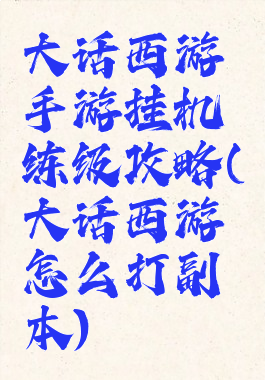 大话西游
手游挂机
练级攻略(
大话西游
怎么打副
本)